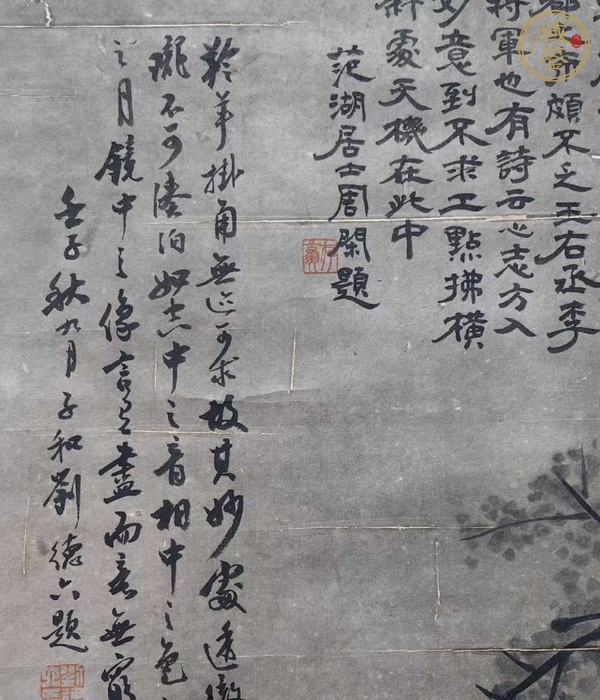 郭而頗不乏王右丞李
將軍也有詩云心志方入
妙意到不求工點拂橫
斜處天機在此中
范湖居士周閑題
羚羊掛角無迹可求故其妙處透徹
瓏不可湊泊如空中之音相中之色
之月鏡中之像言有盡而意無窮
壬子秋九月子和劉德六題